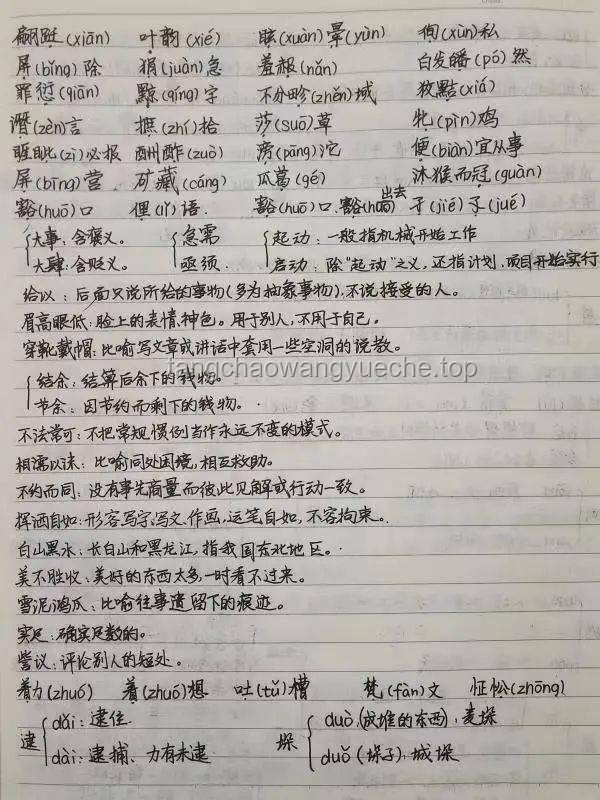 翩跹(xiān) 叶韵(xié) 眩(xuàn)晕(yùn) 徇(xùn)私
屏(bǐng)除 狷(juàn)急 羞赧(nǎn) 白发皤(pó)然
罪愆(qiān) 黥(qíng)字 不分畛(zhěn)域 狡黠(xiá)
谮(zèn)言 摭(zhí)拾 莎(suō)草 牝(pìn)鸡
睚眦(zì)必报 酬酢(zuò) 滂(pāng)沱 便(biàn)宜从事
屏(bīng)营 矿藏(cáng) 瓜葛(gé) 沐猴而冠(guàn)
豁(huō)口 俚(lǐ)语 豁(huō)口 豁(huō)出去 孑(jié)孓(jué)
大事:含褒义。 急需 起动:一般指机械开始工作
大肆:含贬义。 亟须 启动:除“起动”之义,还指计划、项目开始实行
给以:后面只说所给的事物(多为抽象事物),不说接受的人。
眉高眼低:脸上的表情、神色。用于别人,不用于自己。
穿靴戴帽:比喻写文章或讲话中套用一些空洞的说教。
结余:结算后余下的钱物。
节余:因节约而剩下的钱物。
fangchaowangyueche.top
不法常可:不把常规惯例当作永远不变的模式。
相濡以沫:比喻同处困境,相互救助。
不约而同:没有事先商量而彼此见解或行动一致。
挥洒自如:形容写字、写文、作画,运笔自如,不容拘束。
白山黑水:长白山和黑龙江,指我国东北地区。
美不胜收:美好的东西太多,一时看不过来。
雪泥鸿爪:比喻往事遗留下的痕迹。
实足:确实足数的。
訾议:评论别人的短处。
着力(zhuó) 着(zhuó)想 吐(tǔ)槽 梵(fàn)文 怔忪(zhōng)
逮 dǎi:逮住 垛 duò(成堆的东西),麦垛
dài:逮捕、力有未逮 duǒ(垛子):城垛